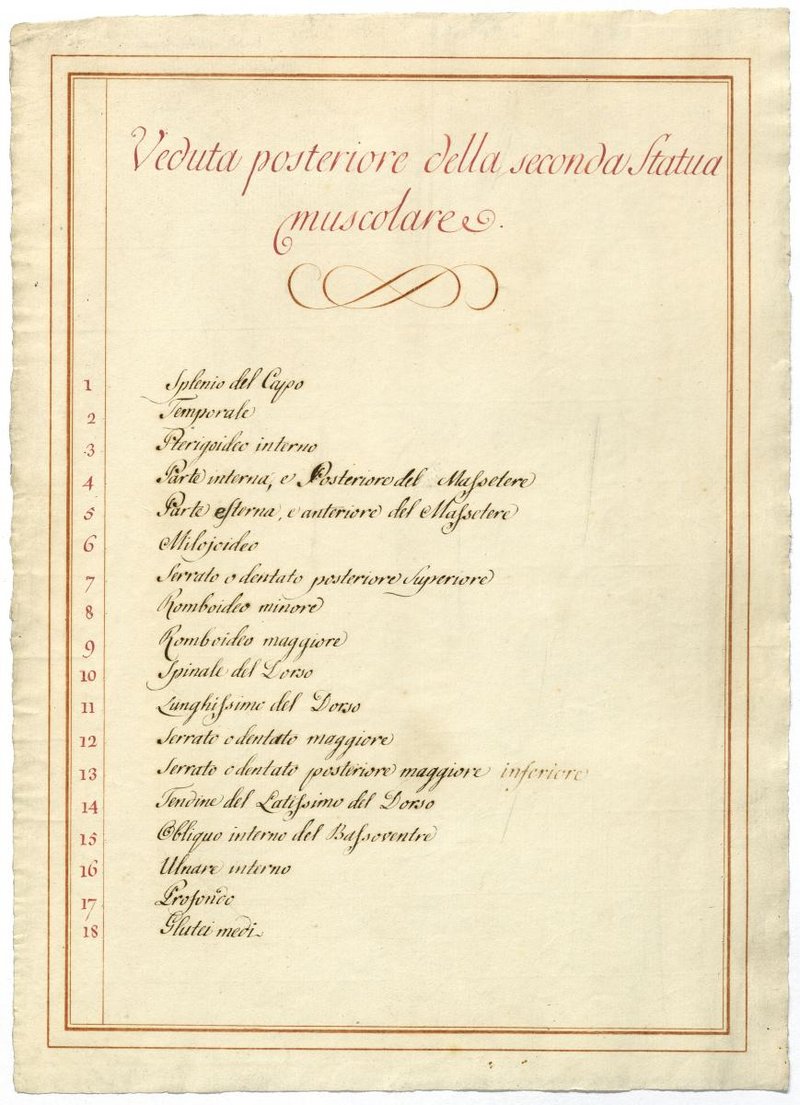 Veduta posteriore della seconda Statua
muscolare.
1 Splenio del Capo
2 Temporale
3 Pterigoideo interno
4 Parte interna, e Posteriore del Massetere
5 Parte esterna, e anteriore del Massetere
6 Milojoideo
7 Serrato o dentato posteriore Superiore
8 Romboideo minore
9 Romboideo maggiore
10 Spinale del Dorso
11 Lunghissimo del Dorso
12 Serrato o dentato maggiore
13 Serrato o dentato posteriore maggiore inferiore
14 Tendine del Latissimo del Dorso
15 Obliquo interno del Bassoventre
16 Ulnare interno
17 Profondo
18 Glutei medi